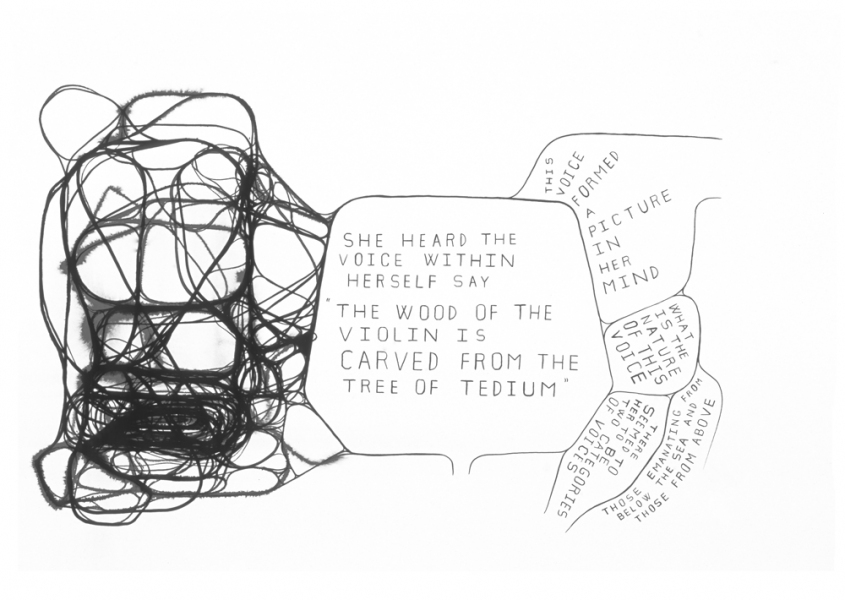 SHE HEARD THE
VOICE WITHIN
HERSELF SAY
"THE WOOD OF THE
VIOLIN IS
CARVED FROM THE
TREE OF TEDIUM"
THIS
VOICE
FORMED
A
PICTURE
IN
HER
MIND
WHAT
IS THE
NATURE
OF THIS
VOICE
THERE
SEEMED TO
HER TO BE
TWO CATEGORIES
OF VOICES
THOSE EMANATING FROM
BELOW THE SEA AND
THOSE FROM ABOVE